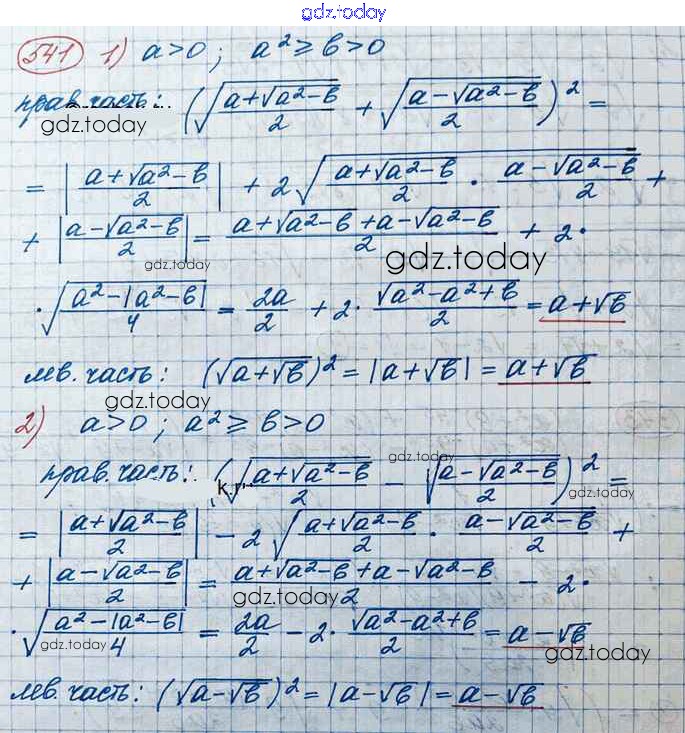 gdz.today
541 1) a>0; a²≥b>0
прав. часть: (√((a+√(a²-b))/2) + √((a-√(a²-b))/2))² =
gdz.today
= |(a+√(a²-b))/2| + 2√((a+√(a²-b))/2 · (a-√(a²-b))/2) +
+ |(a-√(a²-b))/2| = (a+√(a²-b)+a-√(a²-b))/2 + 2·
gdz.today gdz.today
·√((a²-|a²-b|)/4) = 2a/2 + 2·√(a²-a²+b)/2 = a+√b
лев. часть: (√(a+√b))² = |a+√b| = a+√b
gdz.today
2) a>0; a²≥b>0
gdz.today
прав. часть: (√((a+√(a²-b))/2) - √((a-√(a²-b))/2))² =
gdz.today
= |(a+√(a²-b))/2| - 2√((a+√(a²-b))/2 · (a-√(a²-b))/2) +
+ |(a-√(a²-b))/2| = (a+√(a²-b)+a-√(a²-b))/2 - 2·
gdz.today
·√((a²-|a²-b|)/4) = 2a/2 - 2·√(a²-a²+b)/2 = a-√b
gdz.today gdz.today
лев. часть: (√(a-√b))² = |a-√b| = a-√b